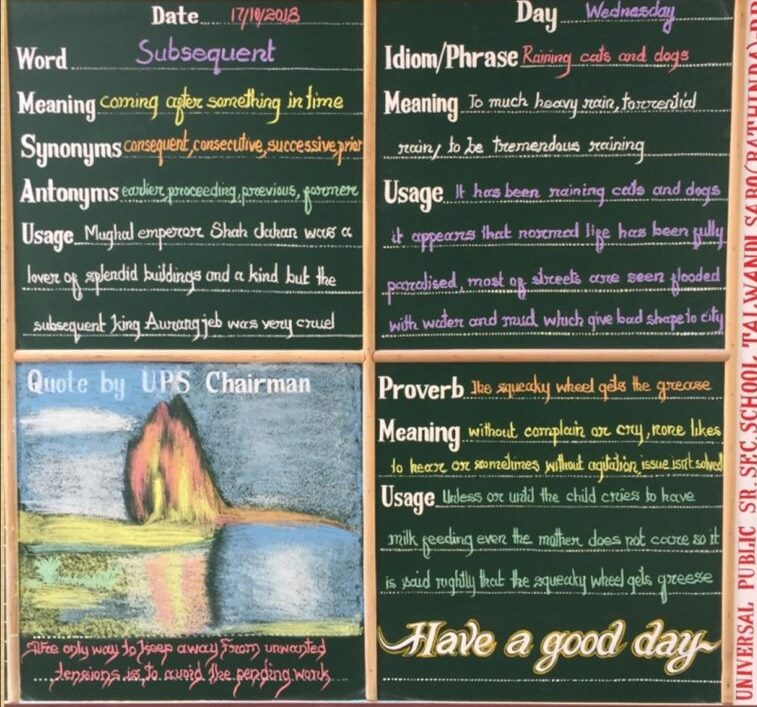 Date 17/10/2018
Word Subsequent
Meaning coming after something in time
Synonyms consequent, consecutive, successive, prior
Antonyms earlier, proceeding, previous, former
Usage Mughal emperor Shah Jahan was a
lover of splendid buildings and a kind but the
subsequent king Aurangjeb was very cruel
Day Wednesday
Idiom/Phrase Raining cats and dogs
Meaning To much heavy rain, torrential
rain, to be tremendous raining
Usage It has been raining cats and dogs
it appears that normal life has been fully
paralised, most of streets are seen flooded
with water and mud, which give bad shape to city
Quote by UPS Chairman
The only way to keep away from unwanted
tensions is to avoid the pending work
Proverb The squeaky wheel gets the grease
Meaning without complain or cry, none likes
to hear or sometimes without agitation, issue isn't solved
Usage Unless or until the child cries to have
milk feeding even the mother does not care so it
is said rightly that the squeaky wheel gets greese
Have a good day
UNIVERSAL PUBLIC SR. SEC. SCHOOL TALWANDI SABO (BATHINDA)